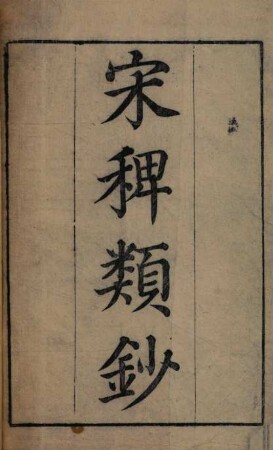 宋稗類鈔